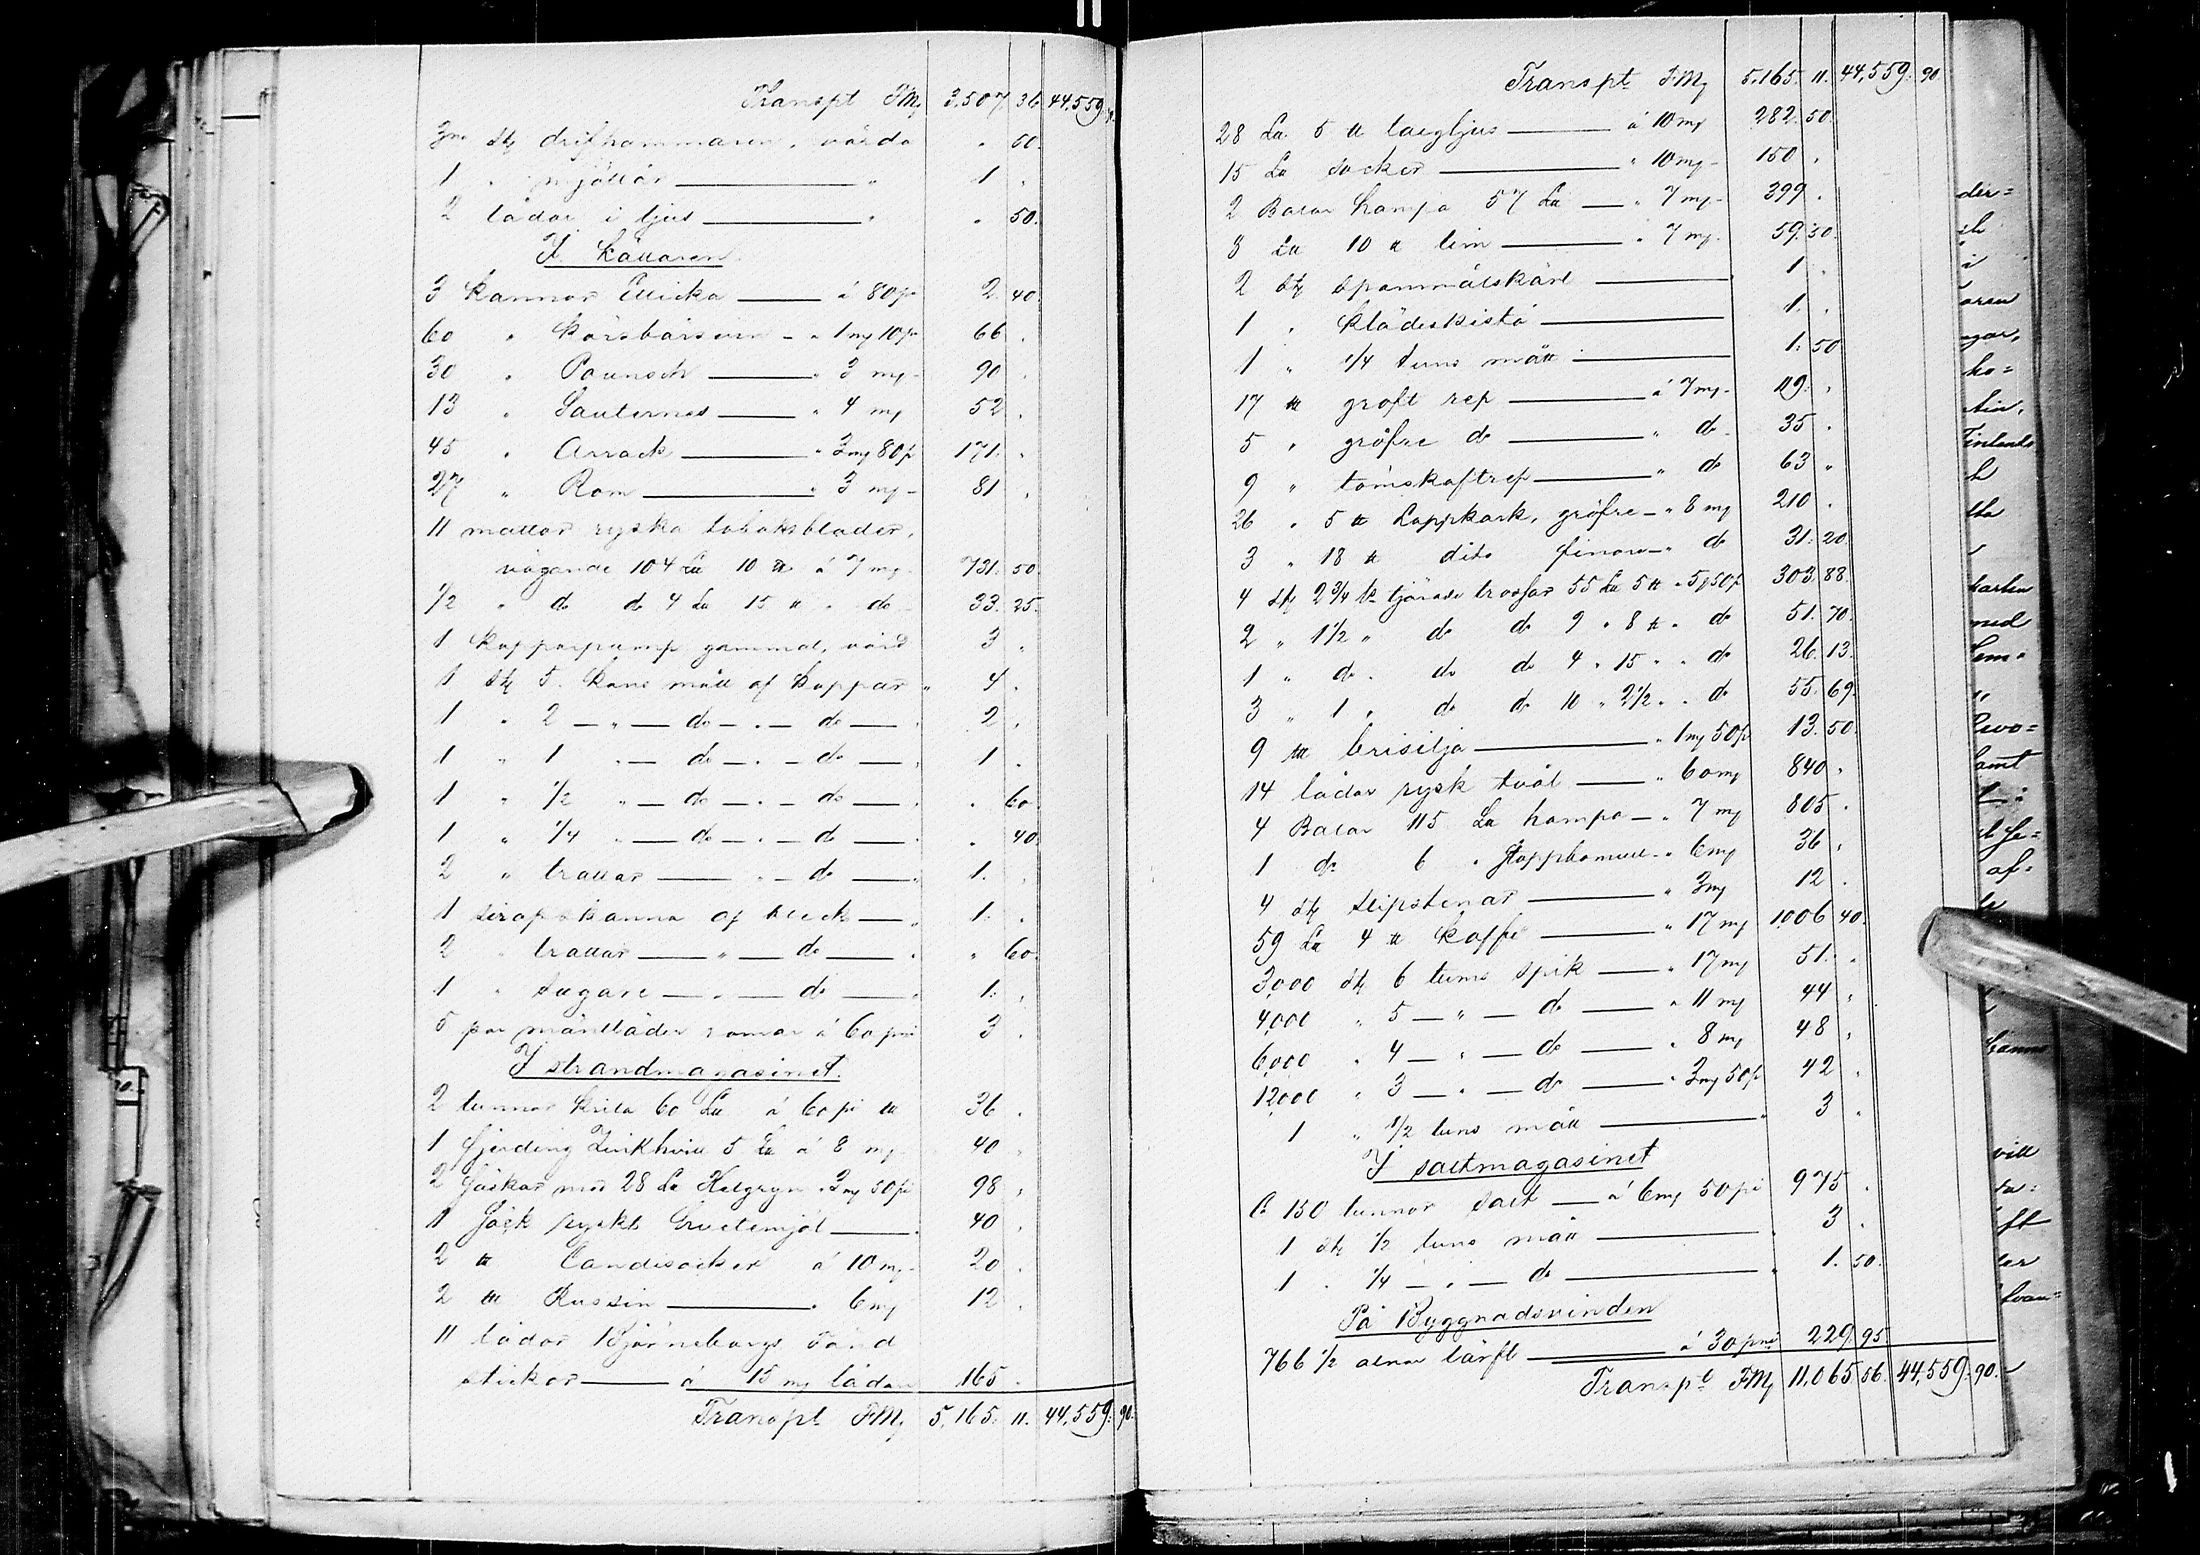 Transpt FMk 3,507 36 44,559. 90.
3ne stk drifhammaren, värda " 50.
1 " mjöllår — " 1 "
2 lådor i ljus — " " 50.
I källaren.
3 kannor Ätticka — á 80 pi 2. 40.
60 " körsbärsvin — " 1 mk 10 pi 66 "
30 " Pounsch — " 3 mk — 90 "
13 " Sauternes — " 4 mk 52 "
45 " Arrack — " 3 mk 80 p 171. "
27 " Rom — " 3 mk — 81 "
11 mattor ryska tobaksblader,
vägande 104 L℔ 10 ℔ á 7 mk — 731. 50.
1/2 " do do 4 L℔ 15 ℔ " do 33. 25.
1 kopparpump gammal, värd 3 "
1 stk 5. kans mått af koppar " 4 "
1 " 2 — " — do — " — do — " 2 "
1 " 1 " — do — " — do — " 1 "
1 " 1/2 " — do — " — do — " " 60.
1 " 1/4 " — do — " — do — " " 40.
2 " trattar — " — do — " 1. "
1 sirapskanna af bleck — " 1. "
2 " trattar — " — do — " " 60.
1 " sugare — " — do — " 1. "
5 par mantläder á 60 pni 3 "
I strandmagasinet.
2 tunnor krita 60 L℔ á 60 pi ℔ 36 "
1 fjerding Zinkhvitt 5 L℔ á 8 mk 40 "
2 Säckar med 28 L℔ Helgryn " 3 mk 50 pi 98 "
1 Säck ryskt hvetemjöl — " 40 "
2 ℔ Candisocker á 10 mk — 20 "
2 ℔ Russin — " 6 mk 12 "
11 lådor Björneborgs tänd
stickor — á 15 mk lådan 165 "
Transpt FMk 5,165. 11. 44,559. 90.
Transpt FMk 5,165. 11. 44,559. 90.
28 L℔ 5 ℔ talgljus — á 10 mk 282. 50.
15 L℔ socker — " 10 mk — 150 "
2 Balar hampa 57 L℔ — " 7 mk — 399 "
8 L℔ 10 ℔ lim — " 7 mk — 59. 30.
2 stk spanmålskärl — 1 "
1 " klädeskista — 1. "
1 " 1/4 tuns mått — 1. 50
17 ℔ groft rep — á 7 mk — 119. "
5 " gröfre do — " do 35 "
9 " tömskaftrep — " do 63 "
26 " 5 ℔ Lappkark, gröfre — " 8 mk 210 "
3 " 18 ℔ dito finare — " do 31. 20.
4 stk 2 3/4 tjärade trossar 55 L℔ 5 ℔ " 5 mk 50 p 303. 88.
2 " 1 1/2 " do do 9 " 8 ℔ " do 51. 70.
1 " do " do do 4 " 15 " " do 26. 13.
3 " 1 " do do 10 " 2 1/2 " " do 55. 69.
9 ℔ brisilja — " 1 mk 50 p 13. 50.
14 lådor rysk tvål — " 60 mk 840 "
4 Balar 115 L℔ hampa — " 7 mk 805 "
1 do 6 " " 6 mk 36 "
4 stk slipstenar — " 3 mk 12 "
59 L℔ 4 ℔ kaffe — " 17 mk 1,006 40.
3,000 stk 6 tums spik — " 17 mk 51. "
4,000 " 5 — " — do — " 11 mk 44 "
6,000 " 4 — " — do — " 8 mk 48 "
12,000 " 3 — " — do — " 3 mk 50 p 42 "
1 " 1/2 tuns mått — " 3 "
I saltmagasinet
Ca 150 tunnor salt — á 6 mk 50 pi 975 "
1 stk 1/2 tuns mått — " 3 "
1 " 1/4 — " — do — " 1. 50.
På Byggnadsvinden
766 1/2 alnar lärft — á 30 pni 229. 95.
Transpt FMk 11,065 56. 44,559. 90.